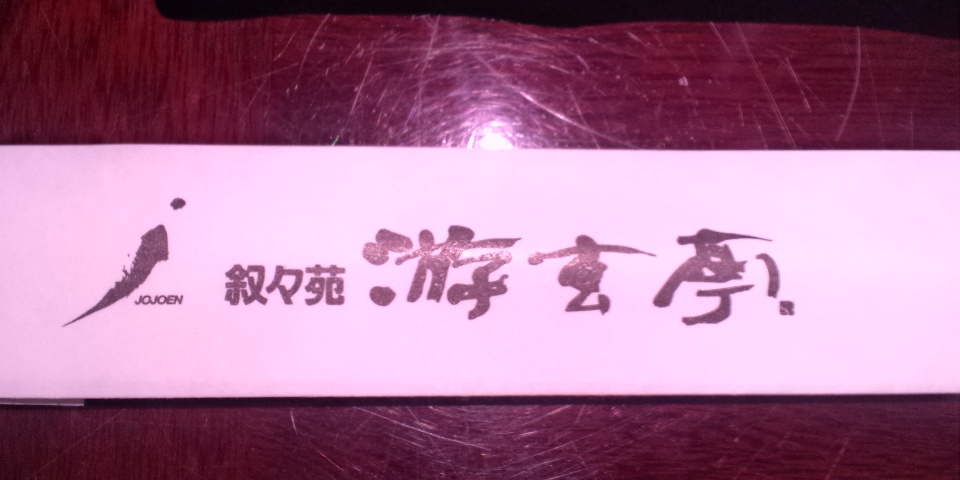 JOJOEN
叙々苑 游玄亭